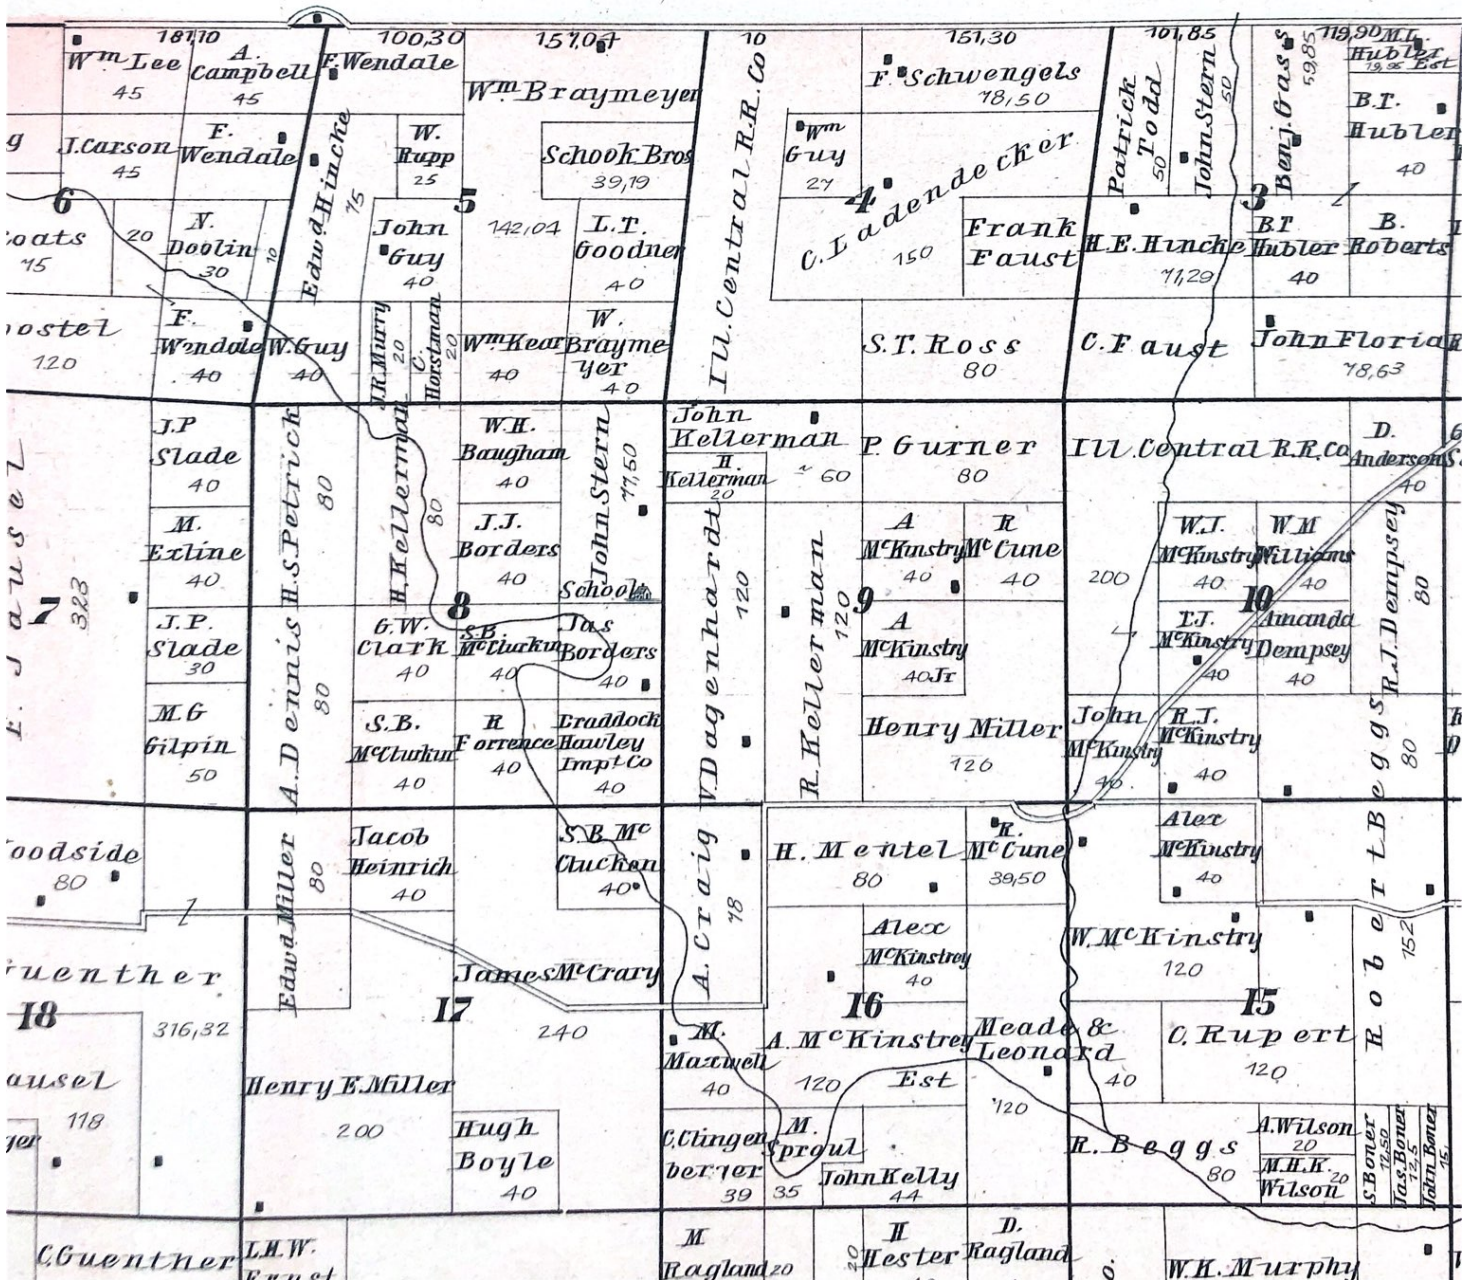 181,10
100,30
157,04
10
151,30
101,85
119,90
Wm Lee
45
A.
Campbell
45
F. Wendale
Wm Braymeyer
Ill. Central R.R. Co
F. Schwengels
78,50
Patrick
Todd
50
John Stern
50
Benj. Gass
59,85
M.L.
Hubler
Est
B.T.
Hubler
40
g
J. Carson
45
F.
Wendale
Edwd Hincke
75
W.
Rupp
25
Schook Bros
39,19
Wm
Guy
27
C. Ladendecker
150
6
5
4
3
oats
75
20
N.
Doolin
30
10
John
Guy
40
142,04
L.T.
Goodner
40
Frank
Faust
H.E. Hincke
71,29
B.T
Hubler
40
B.
Roberts
ostel
120
F.
Wendale
40
W. Guy
40
J.R. Murry
20
C.
Horstman
20
Wm Kear
40
W.
Brayme
yer
40
S.T. Ross
80
C. Faust
John Floria
78,63
F. Jausel
323
J.P
Slade
40
H.S. Petrick
80
H. Kellerman
80
W.H.
Baugham
40
John Stern
77,50
John
Kellerman
60
H.
Kellerman
20
P. Gurner
80
Ill. Central R.R. Co
200
D.
Anderson
40
M.
Exline
40
J.J.
Borders
40
School
V. Dagenhardt
120
R. Kellerman
120
A
McKinstry
40
R
McCune
40
W.J.
McKinstry
40
W M
Williams
40
R.J. Dempsey
80
7
8
9
10
J.P.
Slade
30
A. Dennis
80
G.W.
Clark
40
S.B.
McClurkin
40
Jas
Borders
40
A
McKinstry
40 Jr
T.J.
McKinstry
40
Amanda
Dempsey
40
M G
Gilpin
50
S.B.
McClurkin
40
R
Forrence
40
Braddock
Hawley
Impt Co
40
Henry Miller
120
John
McKinstry
40
R.J.
McKinstry
40
Robert Beggs
80
152
oodside
80
Edwd Miller
80
Jacob
Heinrich
40
S.B. Mc
Clucken
40
A. Craig
78
H. Mentel
80
R.
McCune
39,50
Alex
McKinstry
40
uenther
316,32
James McCrary
240
Alex
McKinstrey
40
W. McKinstry
120
18
17
16
15
ausel
118
Henry E. Miller
200
M.
Maxwell
40
A. McKinstrey
120
Est
Meade &
Leonard
120
40
C. Rupert
120
yer
Hugh
Boyle
40
C. Clingen
berger
39
M.
Sproul
35
John Kelly
44
R. Beggs
80
A. Wilson
20
M.H.K.
20
Wilson
S. Boner
12,50
Jas. Boner
12,5
John Boner
15,
C. Guenther
L.H.W.
Ernst
M
Ragland 20
20
H
Hester
D.
Ragland
W.K. Murphy